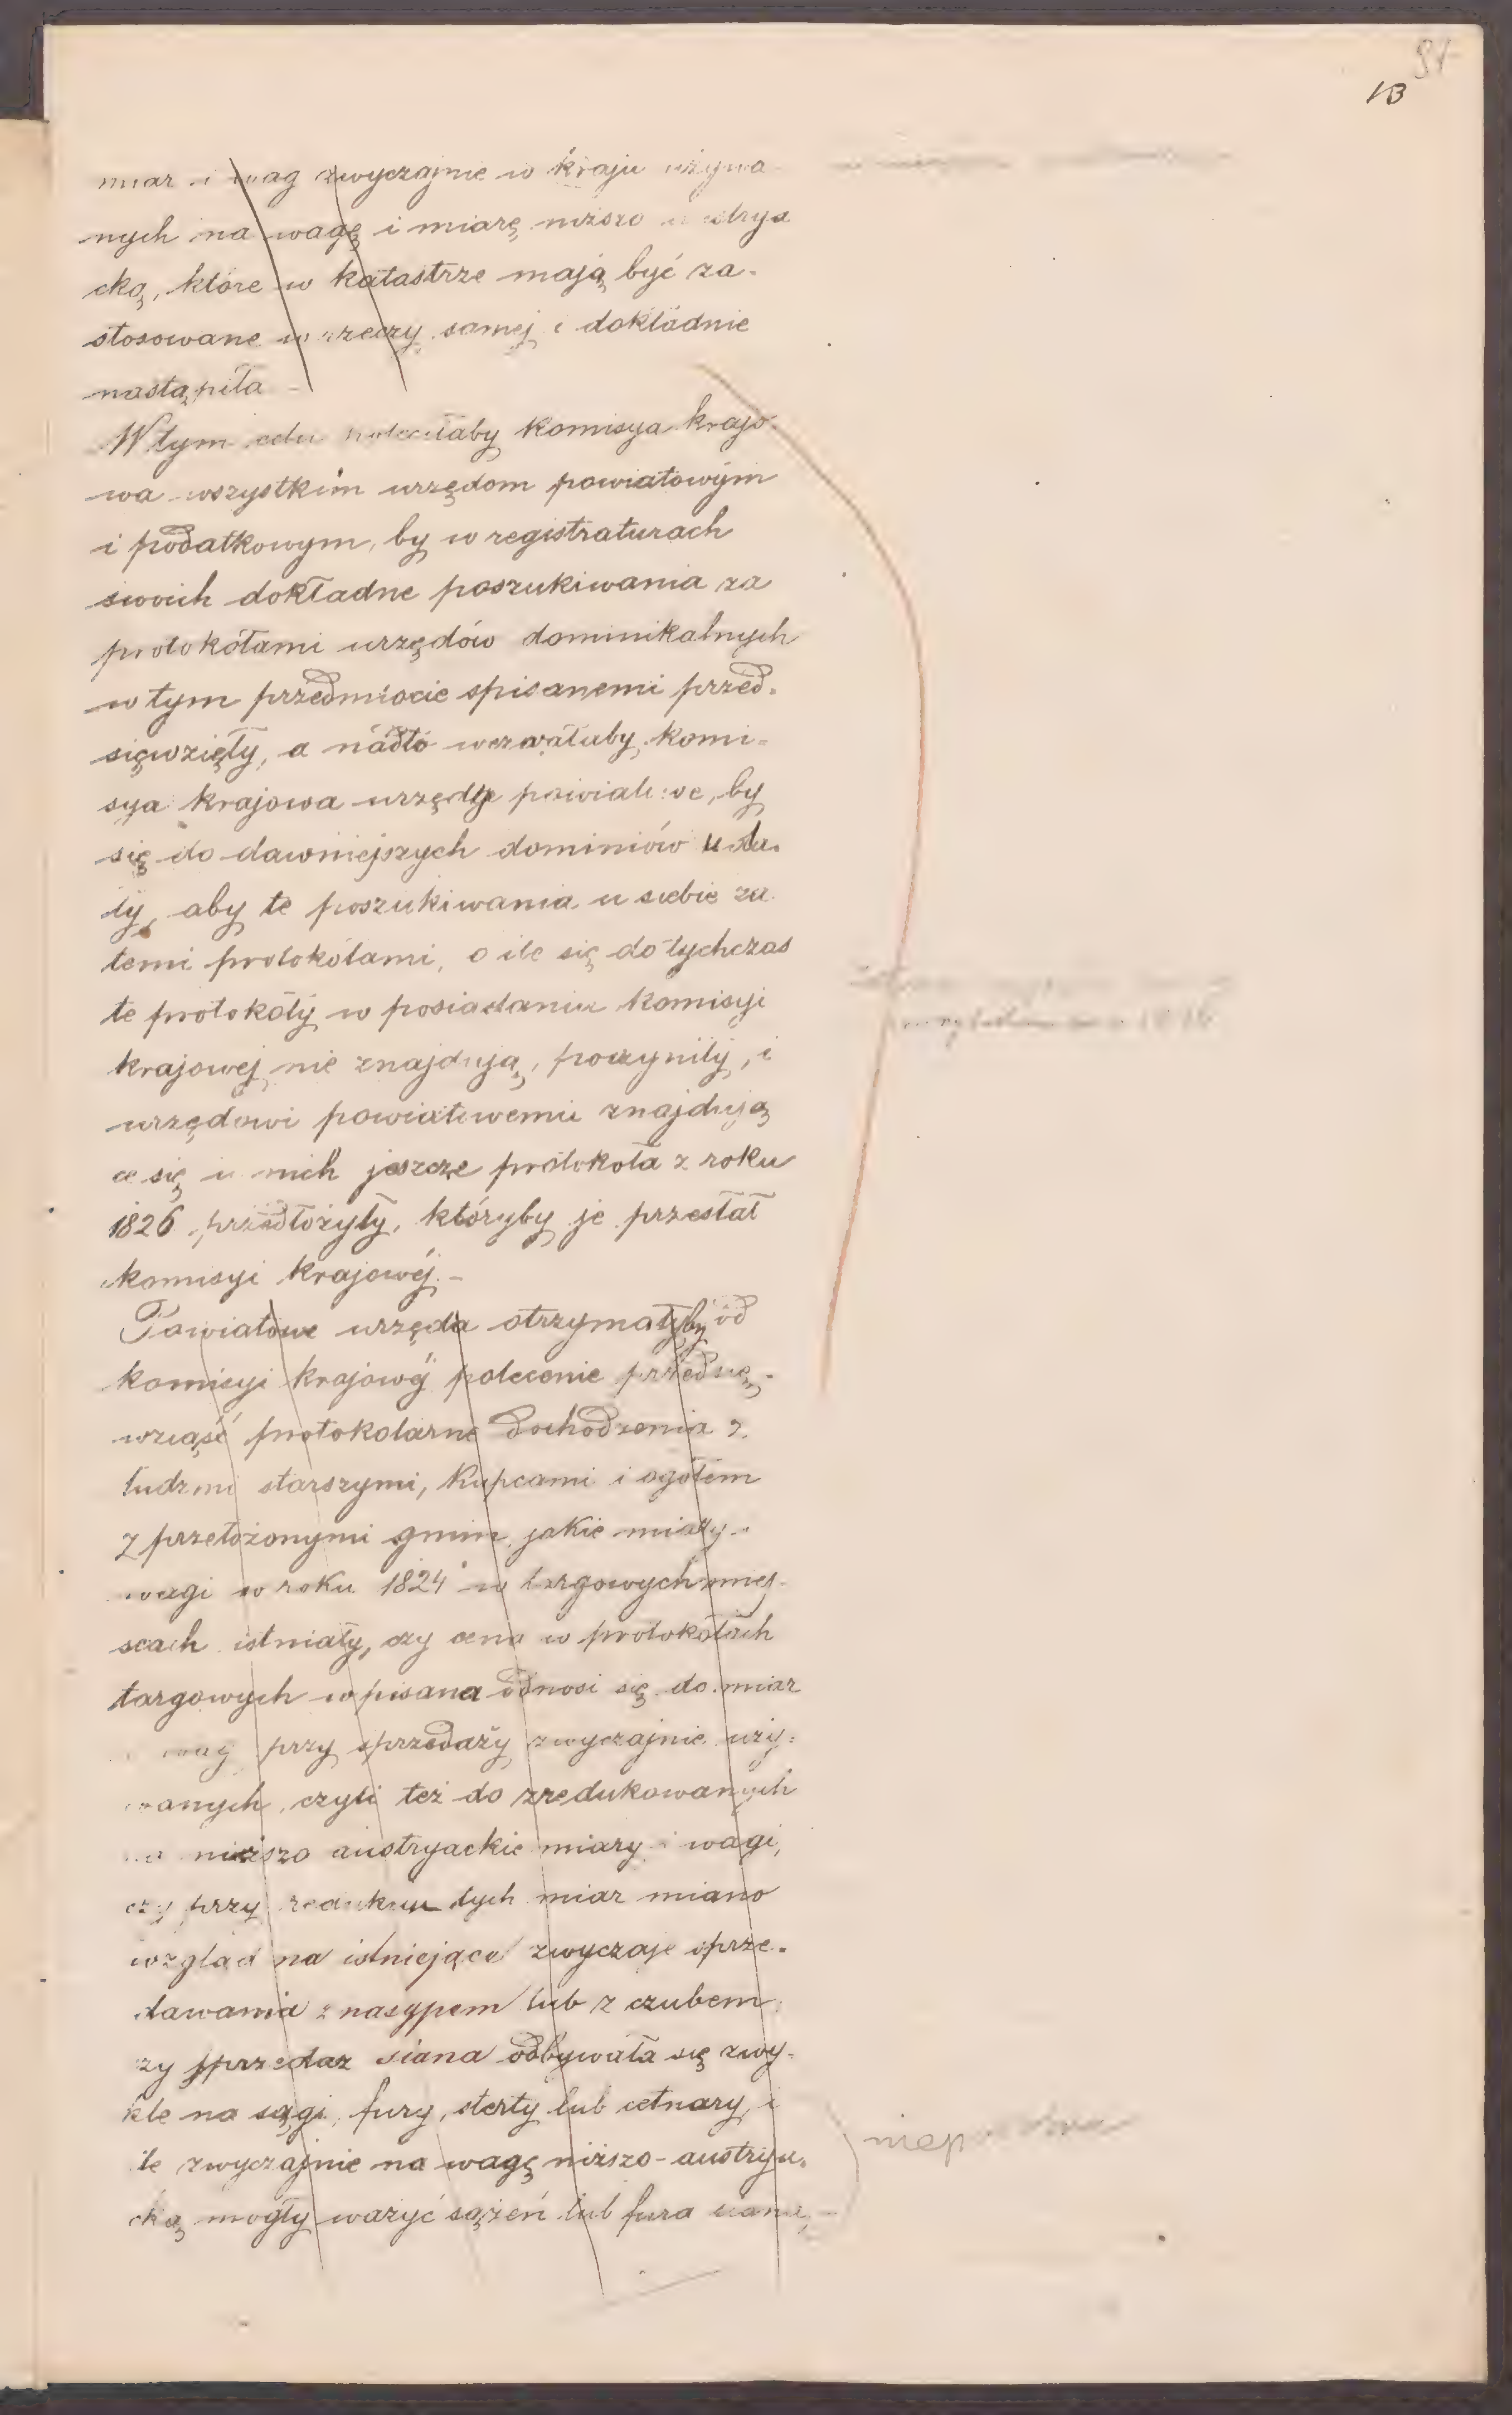 13
miar i wag zwyczajnie w kraju używa
nych na wagę i miarę niższo austrya
cką, które w katastrze mają być za-
stosowane w rzeczy samej i dokładnie
nastąpiła
W tym celu poleciłaby Komisya krajo-
wa wszystkim urzędom powiatowym
i podatkowym, by w registraturach
swoich dokładne poszukiwania za
protokółami urzędów dominikalnych
w tym przedmiocie spisanemi przed-
sięwzięły, a nadto wezwałaby komi-
sya krajowa urzędy powiatowe, by
się do dawniejszych dominiów uda-
ły, aby te poszukiwania u siebie za
temi protokółami, o ile się dotychczas
te protokóły w posiadaniu komisyi
krajowej nie znajdują, poczyniły, i
urzędowi powiatowemu znajdują
ce się u nich jeszcze protokoła z roku
1826 przedłożyły, któryby je przesłał
komisyi krajowéj. -
Powiatowe urzęda otrzymałyby od
komisyi krajowéj polecenie przedsię-
wziąść protokolarne dochodzenia z
ludzmi starszymi, Kupcami i ogółem
z przełożonymi gmin, jakie miary
wagi w roku 1824 w targowych miej-
scach istniały, czy cena w protokółach
targowych wpisana odnosi się do miar
wag przy sprzedaży zwyczajnie uży-
wanych, czyli też do zredukowanych
na niższo austryackie miary i wagi,
czy przy redukcyi tych miar miano
wzgląd na istniejące zwyczaje sprze-
dawania z nasypem lub z czubem,
zy sprzedaż siana odbywała się zwy-
kle na sągi, fury, sterty lub cetnary, i
ile zwyczajnie na wagę niższo-austrya-
cką mogły ważyć sążeń lub fura siana,